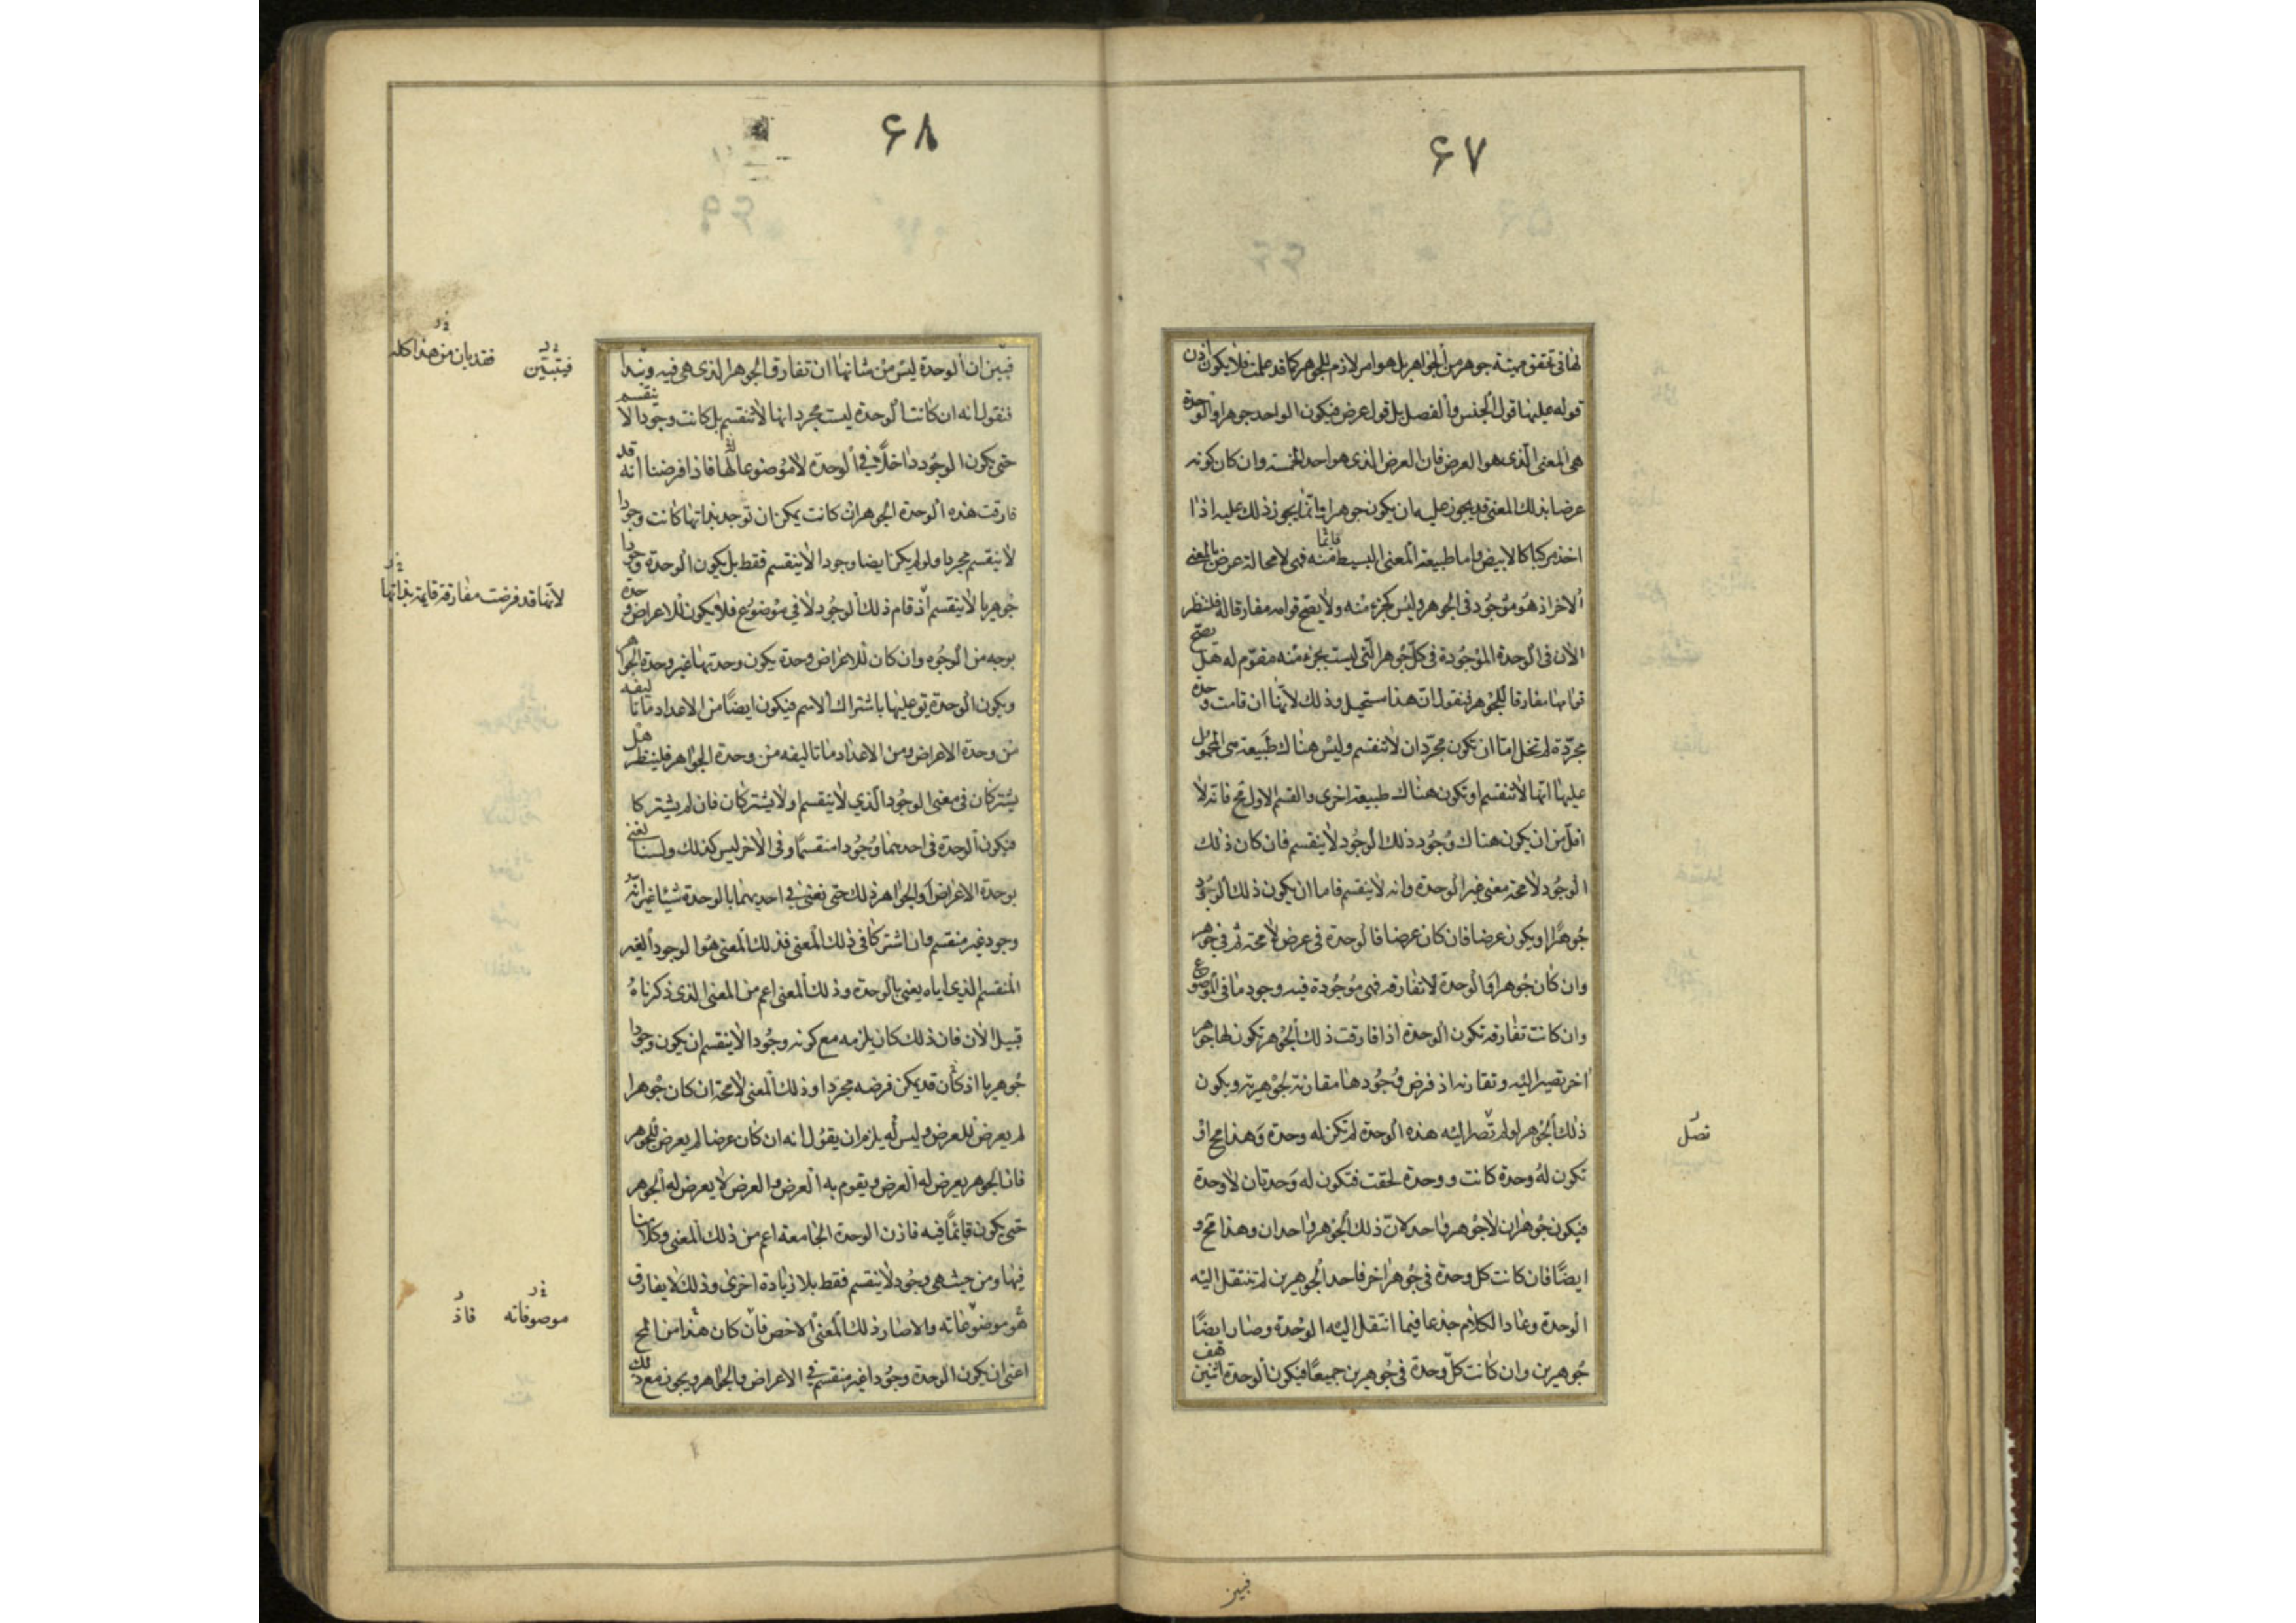 ۶۷
لها في تحقق مهية جوهر من الجواهر بل هو امر لازم للجوهر كما قد علمت فلا يكون اذن
قوله عليها قول الجنس والفصل بل قول عرض فيكون الواحد جوهرا والوحدة
هي المعنى الذي هو العرض فان العرض الذي هو احد الخمسة وان كان كونه
عرضا بذلك المعنى قد يجوز عليه ان يكون جوهرا وانما يجوز ذلك عليه اذا
اخذ مركبا كالابيض واما طبيعة المعنى البسيط منه فهي لا محالة عرض بالمعنى
الاخر اذ هو موجود في الجوهر وليس كجزء منه ولا يصح قوامه مفارقا له فلننظر
الان في الوحدة الموجودة في كل جوهر التي ليست بجزء منه مقوم له هل يصح
قوامها مفارقا للجوهر فنقول ان هذا مستحيل وذلك لانها ان قامت وحدة
مجردة لم تخل اما ان تكون مجرد ان لا تنقسم وليس هناك طبيعة هي المحمول
عليها انها لا تنقسم او تكون هناك طبيعة اخرى والقسم الاول مح فانه لا
اقل من ان يكون هناك وجود ذلك الوجود لا ينقسم فان كان ذلك
الوجود لا محة معنى غير الوحدة وانه لا ينقسم فاما ان يكون ذلك الوجود
جوهرا او يكون عرضا فان كان عرضا فالوحدة في عرض لا محة ثم في جوهر
وان كان جوهرا والوحدة لا تفارقه فهي موجودة فيه وجود ما في الموضوع
وان كانت تفارقه تكون الوحدة اذا فارقت ذلك الجوهر تكون لها جوهر
اخر تصير اليه وتقارنه اذ فرض وجودها مقارنة لجوهرية ويكون
ذلك الجوهر لو لم تصر اليه هذه الوحدة لم تكن له وحدة وهذا مح او
تصل
تكون له وحدة كانت ووحدة لحقت فتكون له وحدتان لا وحدة
فيكون جوهران لا جوهر واحد لان ذلك الجوهر واحدان وهذا مح و
ايضا فان كانت كل وحدة في جوهر اخر فاحد الجوهرين لم تنتقل اليه
الوحدة وعاد الكلام جذعا فيما انتقل اليه الوحدة وصار ايضا
جوهرين وان كانت كل وحدة في جوهرين جميعا فيكون الوحدة اثنين هف
فبين
۶۸
فبين ان الوحدة ليس من شانها ان تفارق الجوهر الذي هي فيه ونبدا
فيتبين فقد بان من هذا كله
فنقول انه ان كانت الوحدة ليست مجرد انها لا تنقسم بل كانت وجودا لا ينقسم
حتى يكون الوجود داخلا في الوحدة لا موضوعا لها فاذا فرضنا انه قد
فارقت هذه الوحدة الجوهر ان كانت يمكن ان توجد بذاتها كانت وجودا
لا ينقسم مجردا ولو لم يكن ايضا وجودا لا ينقسم فقط بل يكون الوحدة وجودا
لانها قد فرضت مفارقة قايمة بذاتها
جوهريا لا ينقسم اذ قام ذلك الوجود لا في موضوع فلا يكون للاعراض وحدة
بوجه من الوجوه وان كان للاعراض وحدة يكون وحدتها غير وحدة الجواهر
ويكون الوحدة تق عليها باشتراك الاسم فيكون ايضا من الاعداد ما تاليفه
من وحدة الاعراض ومن الاعداد ما تاليفه من وحدة الجواهر فلينظر هل
يشتركان في معنى الوجود الذي لا ينقسم او لا يشتركان فان لم يشتركا
فيكون الوحدة في احدهما وجودا منقسما وفي الاخر ليس كذلك ولسنا نعني
بوحدة الاعراض او الجواهر ذلك حتى نعني في احديهما بالوحدة شيئا غير انه
وجود غير منقسم وان اشتركا في ذلك المعنى فذلك المعنى هو الوجود الغير
المنقسم الذي اياه يعنى بالوحدة وذلك المعنى اعم من المعنى الذي ذكرناه
قبيل الان فان ذلك كان يلزمه مع كونه وجودا لا ينقسم ان يكون وجودا
جوهريا اذ كان قد يمكن فرضه مجردا وذلك المعنى لا محة ان كان جوهرا
لم يعرض للعرض وليس له يلزم ان يقول انه ان كان عرضا لم يعرض للجوهر
فان الجوهر يعرض له العرض ويقوم به العرض والعرض لا يعرض له الجوهر
حتى يكون قائما فيه فاذن الوحدة الجامعة اعم من ذلك المعنى وكلامنا
فيها ومن حيث هي وجود لا ينقسم فقط بلا زيادة اخرى وذلك لا يفارق
هو موضوعاته والا صار ذلك المعنى الاخص فان كان هذا من المح
موصوفاته فاذ
اعني ان يكون الوحدة وجودا غير منقسم في الاعراض والجواهر ويجوز مع ذلك